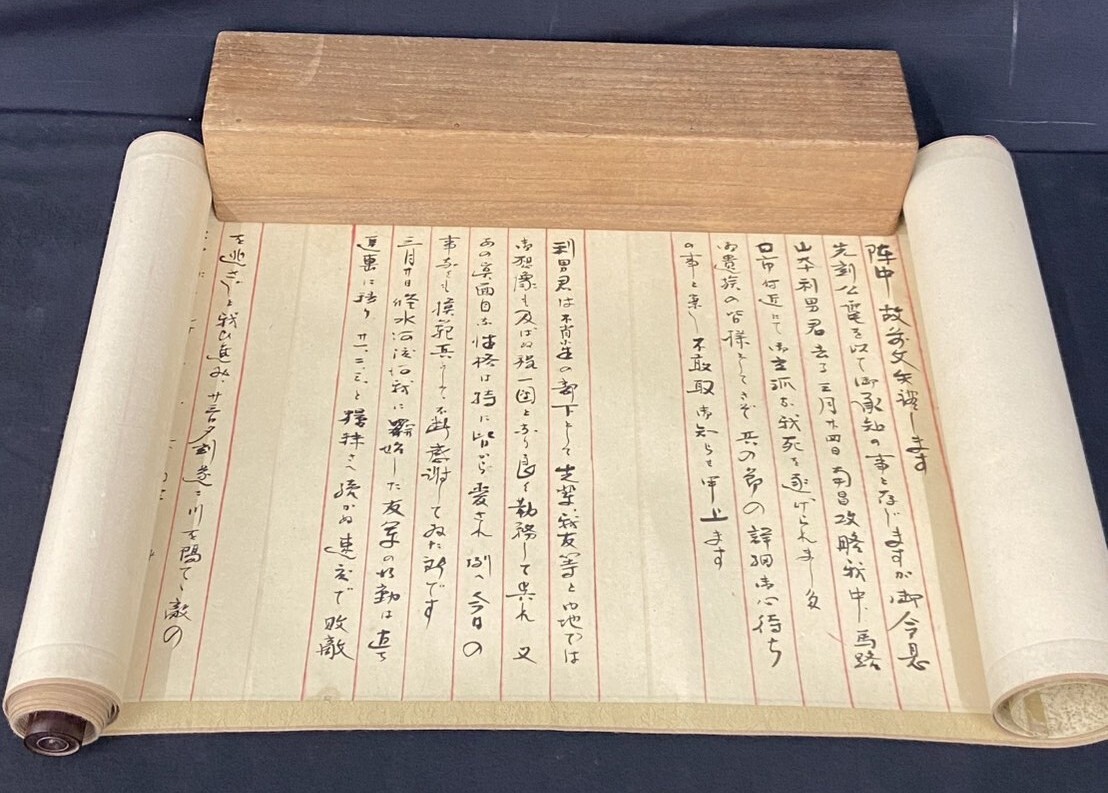 陣中 故前文失禮します
先刻公電を以て御承知の事と存じますが御令息
山本利男君 去る三月廿四日 南昌攻略戦中
口市付近にて 戦死を遂げられました
御遺族の皆様としてさぞ其の節の詳細御心待ち
の事と 不敢取御知らせ申上ます
利男君は不肖小生の部下として 戦友等と内地では
御想像も及ばぬ程一団となり良く勤務して呉れ 又
あの真面目な性格は特に皆から愛され 今日の
事なども模範兵として不断感謝してゐた所です
三月廿日修水河渡河戦に 開始した友軍の行動は直ち
追撃に移り 廿一、二、三と 糧秣さへ続かぬ速度で敗敵
を逃さじと 進み 廿三日夕刻遂に川を隔て敵の